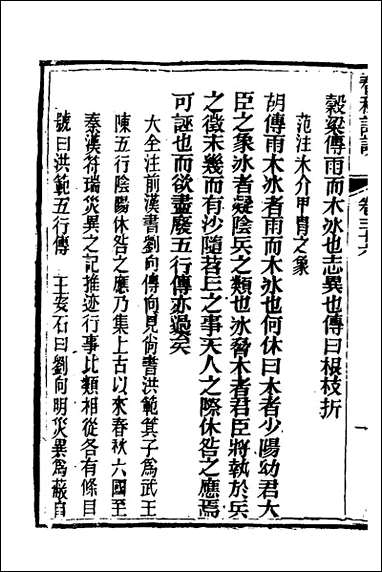 卷三十六
穀梁傳雨而木冰也志異也傳曰根枝折
范注木介甲冑之象
胡傳雨木冰者雨而木冰也何休曰木者少陽幼君大
臣之象冰者凝陰兵之類也冰脅木者君臣將執於兵
之徵未幾而有沙隨苕丘之事天人之際休咎之應焉
可誣也而欲盡廢五行傳亦過矣
大全注前漢書劉向傳向見尙書洪範箕子爲武王
陳五行陰陽休咎之應乃集上古以來春秋六國至
秦漢符瑞災異之記推迹行事比類相從各有條目
號曰洪範五行傳 王安石曰劉向明災異爲蔽自
一